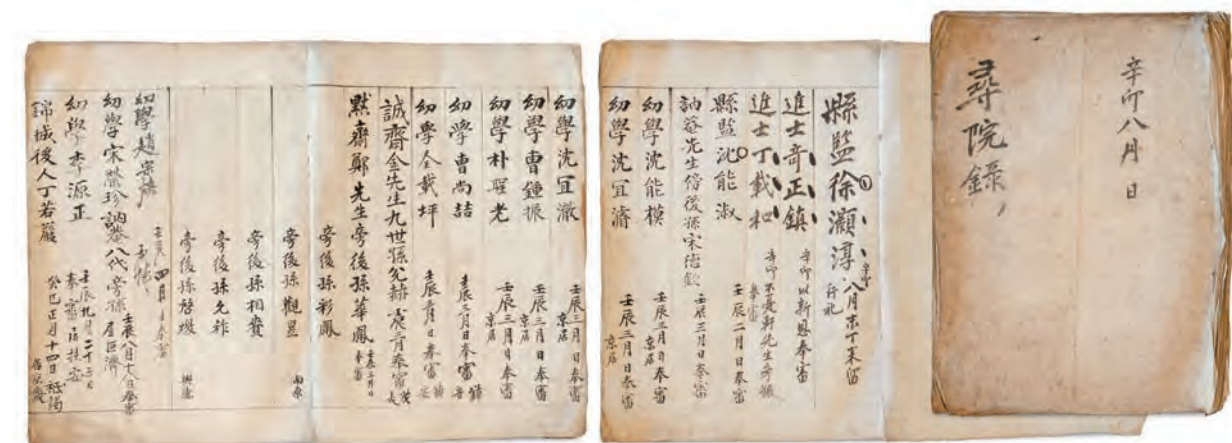 辛卯八月 日
尋院錄
縣監徐灝淳 辛卯八月末丁來留行祀
進士奇正鎮 辛卯以新恩奉審
進士丁載和 辛卯不憂軒先生旁孫奉審
縣監沈能淑 壬辰二月日奉審
訥菴先生傍後孫宋德欽 壬辰三月日奉審
幼學沈能模 壬辰三月日奉審 京居
幼學沈宜濟 壬辰三月日奉審 京居
幼學沈宜澈 壬辰三月日奉審 京居
幼學曹鍾振 壬辰三月日奉審 京居
幼學朴聖老 壬辰三月日奉審
幼學曹尚喆 壬辰三月日奉審
幼學全載坪 壬辰三月日奉審
誠齋金先生九世孫 壬辰三月奉審
默齋鄭先生旁後孫華鳳 壬辰三月日奉審
旁後孫彩鳳
旁後孫觀昱 南原
旁後孫相賚
旁後孫允祚
旁後孫啓
幼學趙 四月 日奉審
幼學宋榮珍訥菴八代旁孫 壬辰八月十八日奉審
幼學李源正 壬辰九月二十三日奉審 居扶安
錦城後人丁若 癸巳正月十四日祗謁